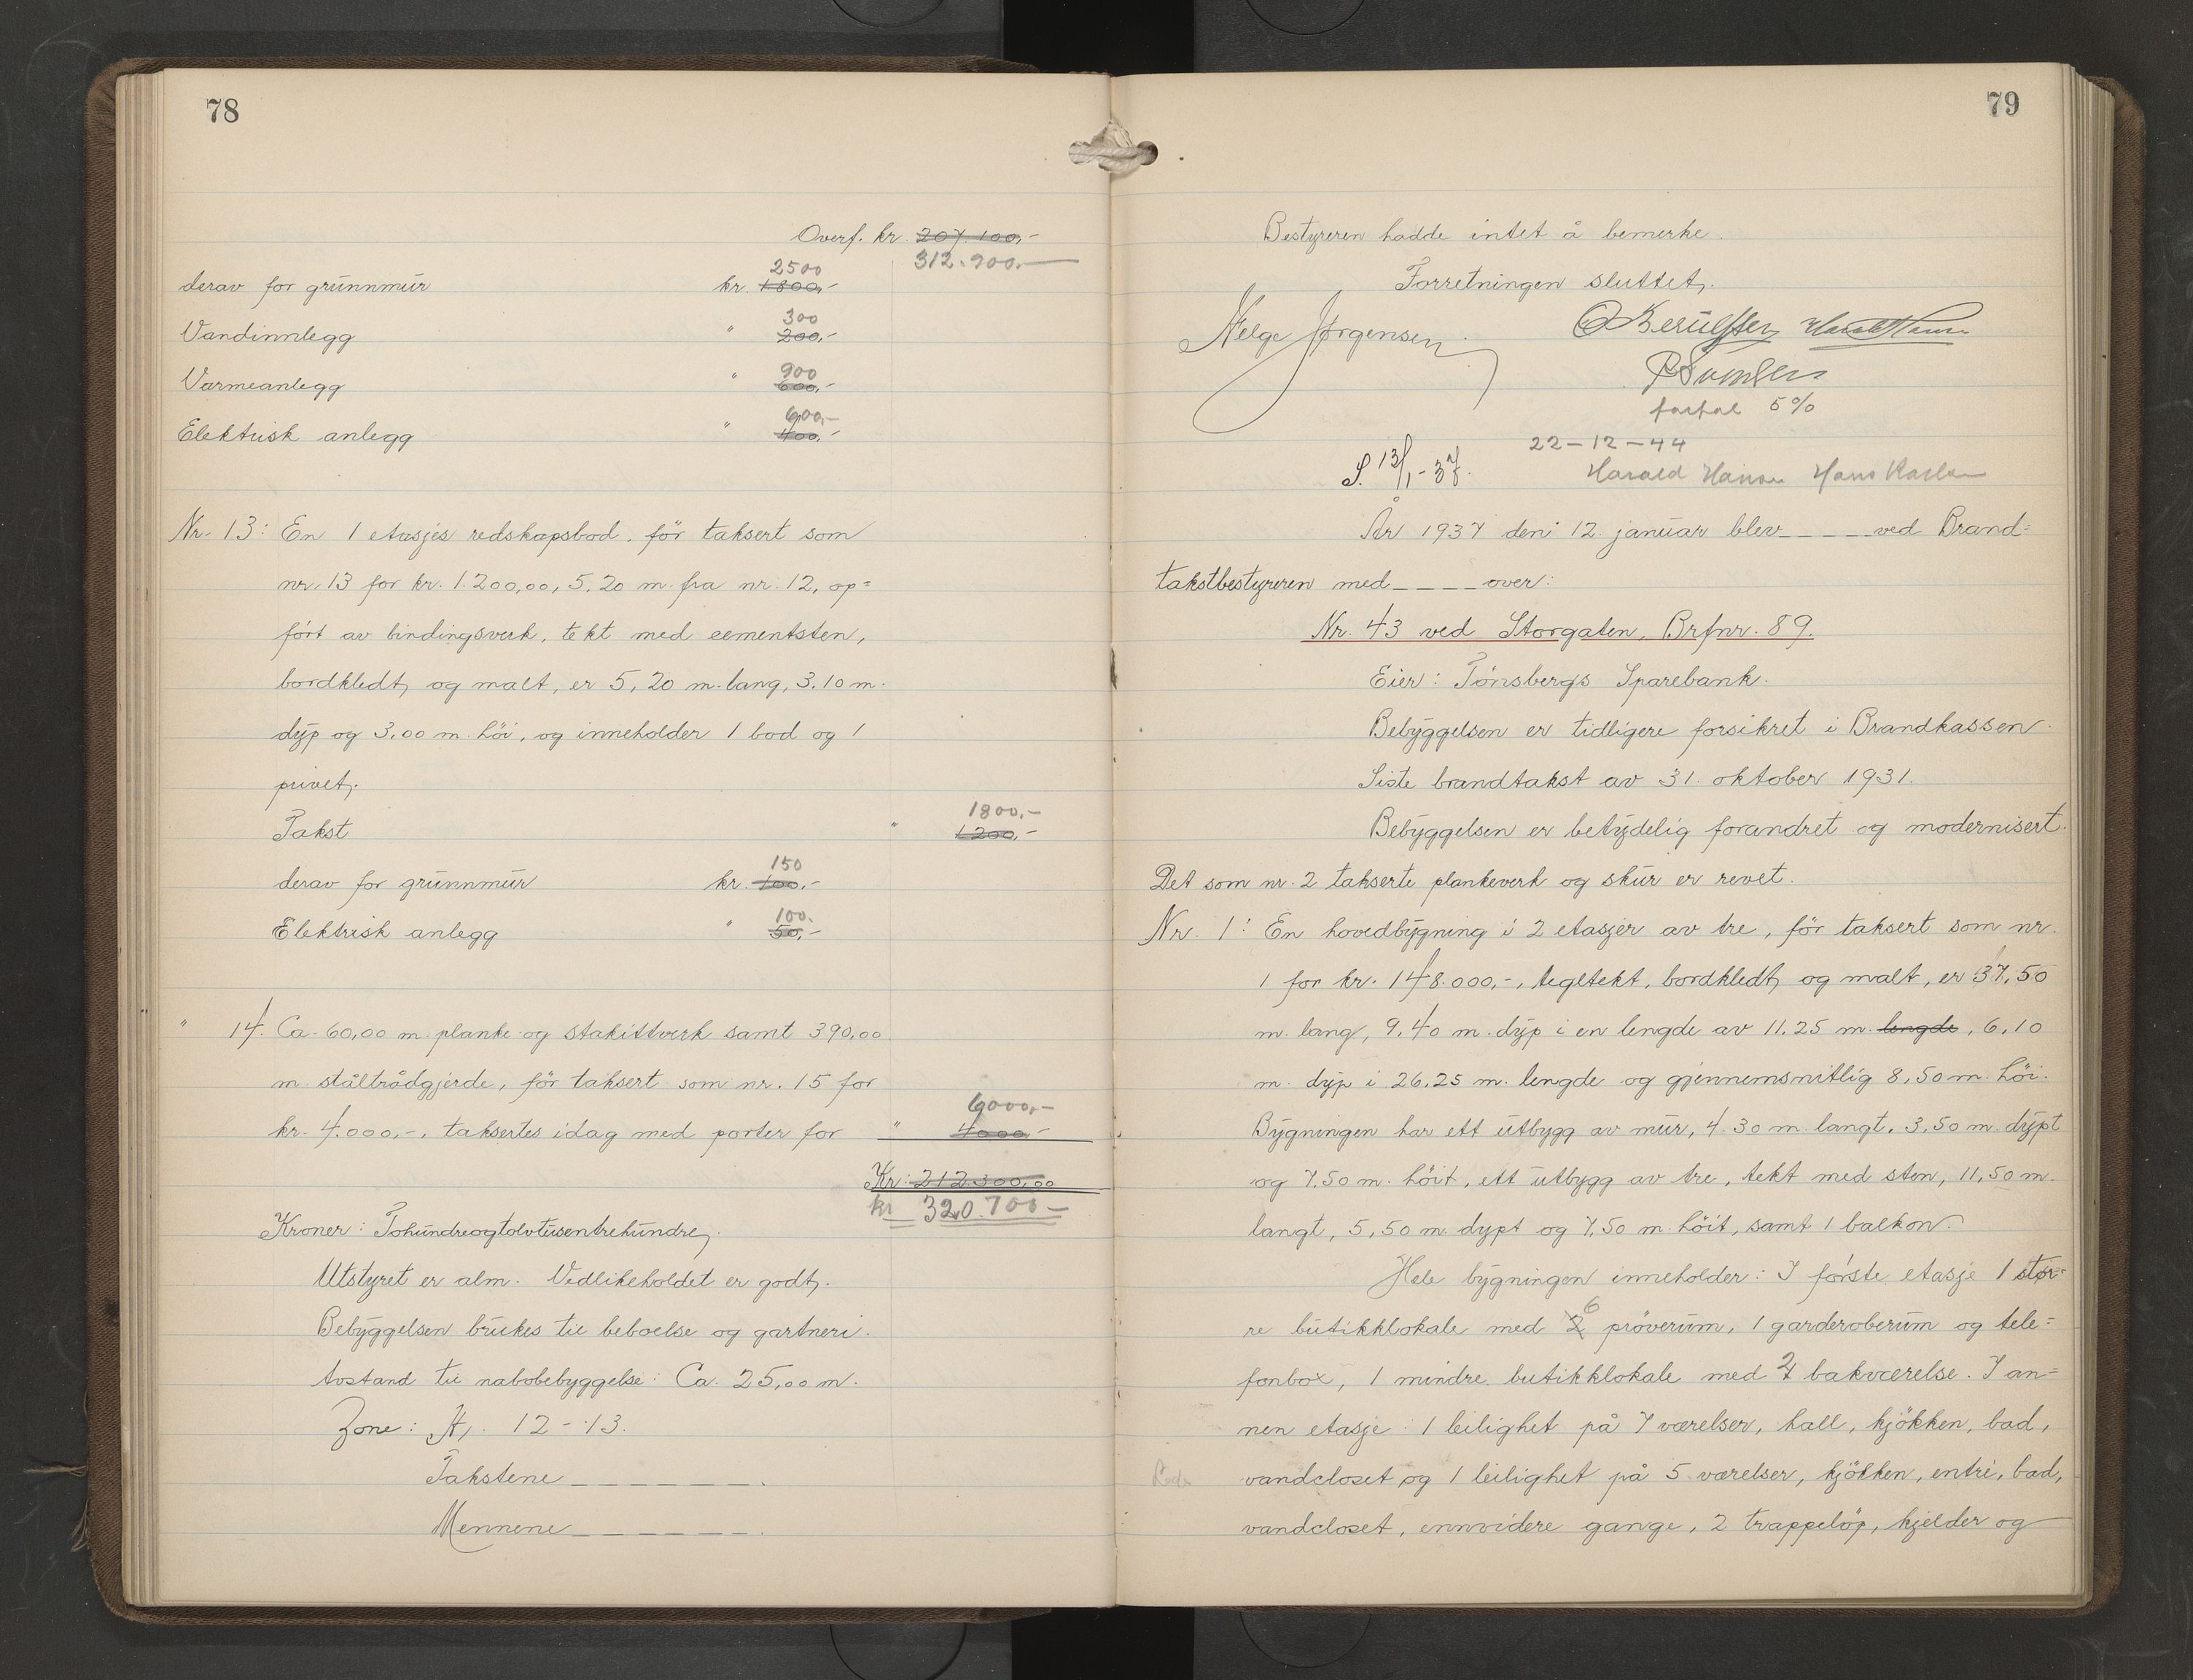 78
Overf. kr. 207.100,-
312.900.-
2500
derav for grunnmur kr. 1800,-
300
Vandinnlegg " 200,-
900
Varmeanlegg " 600,-
600,-
Elektrisk anlegg " 400,-
Nr. 13: En 1 etasjes redskapsbod, før taksert som
nr. 13 for kr. 1.200,00, 5,20 m. fra nr. 12, op=
ført av bindingsverk, tekt med cementsten,
bordkledt, og malt, er 5,20 m. lang, 3.10 m.
dyp og 3,00 m. høi, og inneholder 1 bod og 1
privet,.
1800,-
Takst " 1200,-
150
derav for grunnmur kr. 100,-
100.
Elektrisk anlegg " 50,-
" 14. Ca. 60,00 m. planke- og stakittverk samt 390,00
m. ståltrådgjerde, før taksert som nr. 15 for
6000,-
kr. 4.000,-, taksertes idag med porter for " 4000,-
Kr: 212300,00
kr 320.700-
Kroner: Tohundreogtolvtusentrehundre,.
Utstyret er alm. Vedlikeholdet er godt,.
Bebyggelsen brukes til beboelse og gartneri.
Avstand til nabobebyggelse: Ca. 25,00 m.
Zone: A,. 12-13.
Takstene _ _ _ _ _ _ _ .
Mennene _ _ _ _ _ _ _ .
79
Bestyreren hadde intet å bemerke.
Forretningen sluttet,.
Helge Jørgensen
5%
22-12-44
S. 13/1-37.
Harald Hansen Hans
År 1937 den 12. januar blev _ _ _ _ _ ved Brand=
takstbestyreren med _ _ _ _ over:
Nr. 43 ved Storgaten, Brfnr. 89.
Eier: Tønsbergs Sparebank.
Bebyggelsen er tidligere forsikret i Brandkassen.
Siste brandtakst av 31. oktober 1931.
Bebyggelsen er betydelig forandret og modernisert.
Det som nr. 2 takserte plankeverk og skur er revet.
Nr. 1: En hovedbygning i 2 etasjer av tre, før taksert som nr.
1 for kr. 148.000,-, tegltekt, bordkledt, og malt, er 37,50
m. lang, 9,40 m. dyp i en lengde av 11,25 m. lengde, 6,10
m. dyp i 26,25 m. lengde og gjennemsnitlig 8,50 m. høi.
Bygningen har ett utbygg av mur, 4.30 m. langt, 3,50 m. dypt
og 7,50 m. høit, ett utbygg av tre, tekt med sten, 11,50 m.
langt, 5,50 m. dypt og 7,50 m. høit, samt 1 balkon.
Hele bygningen inneholder: I første etasje 1 stør=
6
re butikklokale med 2 prøverum, 1 garderoberum og tele=
fonbox, 1 mindre butikklokale med 2 bakværelse. I an=
nen etasje: 1 leilighet på 7 værelser, hall, kjøkken, bad,
vandcloset og 1 leilighet på 5 værelser, kjøkken, entre, bad,
vandcloset, ennvidere gange, 2 trappeløp, kjelder og